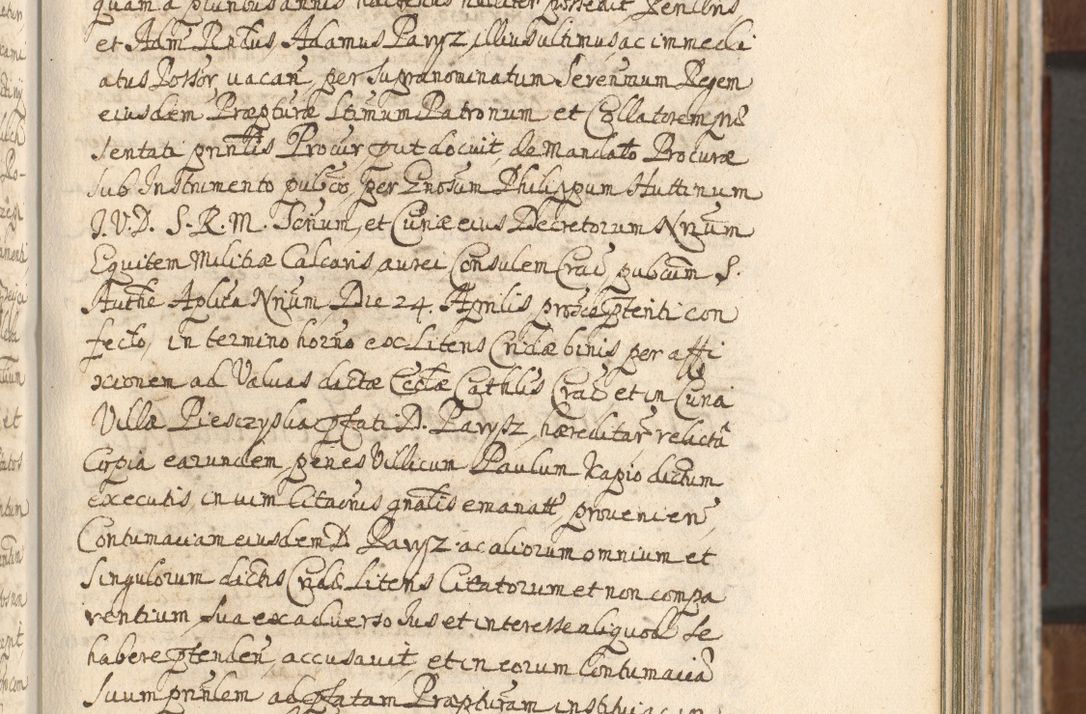 quam a pluribus annis hactenus nulliter possedit,
et Adm̃ R̃ndus Adamus Parysz, illius ultimus ac immedi
atus Possõr, vacañ, per supranominatum Serenm̃um Regem
eiusdem Præpturæ Ltimum Patronum et Collatorem, p̃re
sentati prñtis Procur̃ put docuit, de Mandato Procuræ
sub Instrumento publico, per Gñosum Philippum Huttinum
J. V. D. S. R. M. Torium, et Curiæ eius Decretorum Nrium
Equitem Militiæ Calcaris aurei Consulem Crac̃ pubcum S.
Authe Aplica Nrium Die 24. Aprilis prox̃e ptenti con
fecto, in termino horño ex Litens Cridæ binis per affi
xionem ad Valvas dictæ Ecclæ Cathlis Crac̃ et in Curia
Villæ Piesczyska pfati D. Parysz, hæreditar̃ relictã
Copia earundem, penes Villicum Paulum Kapio dictum
executis, in vim Citãonis gñalis emanatt, provenien,
Contumaciam eiusdem D. Parysz ac aliorum omnium et
Singulorum dictis Cridæ Litens Citatorum et non compa
rentium, sua ex adverso Ius et interesse aliquod se
habere ptenden, accusavit, et in eorum Contumaciã
suum prñlem ad pfatam Præpturam institui ac in